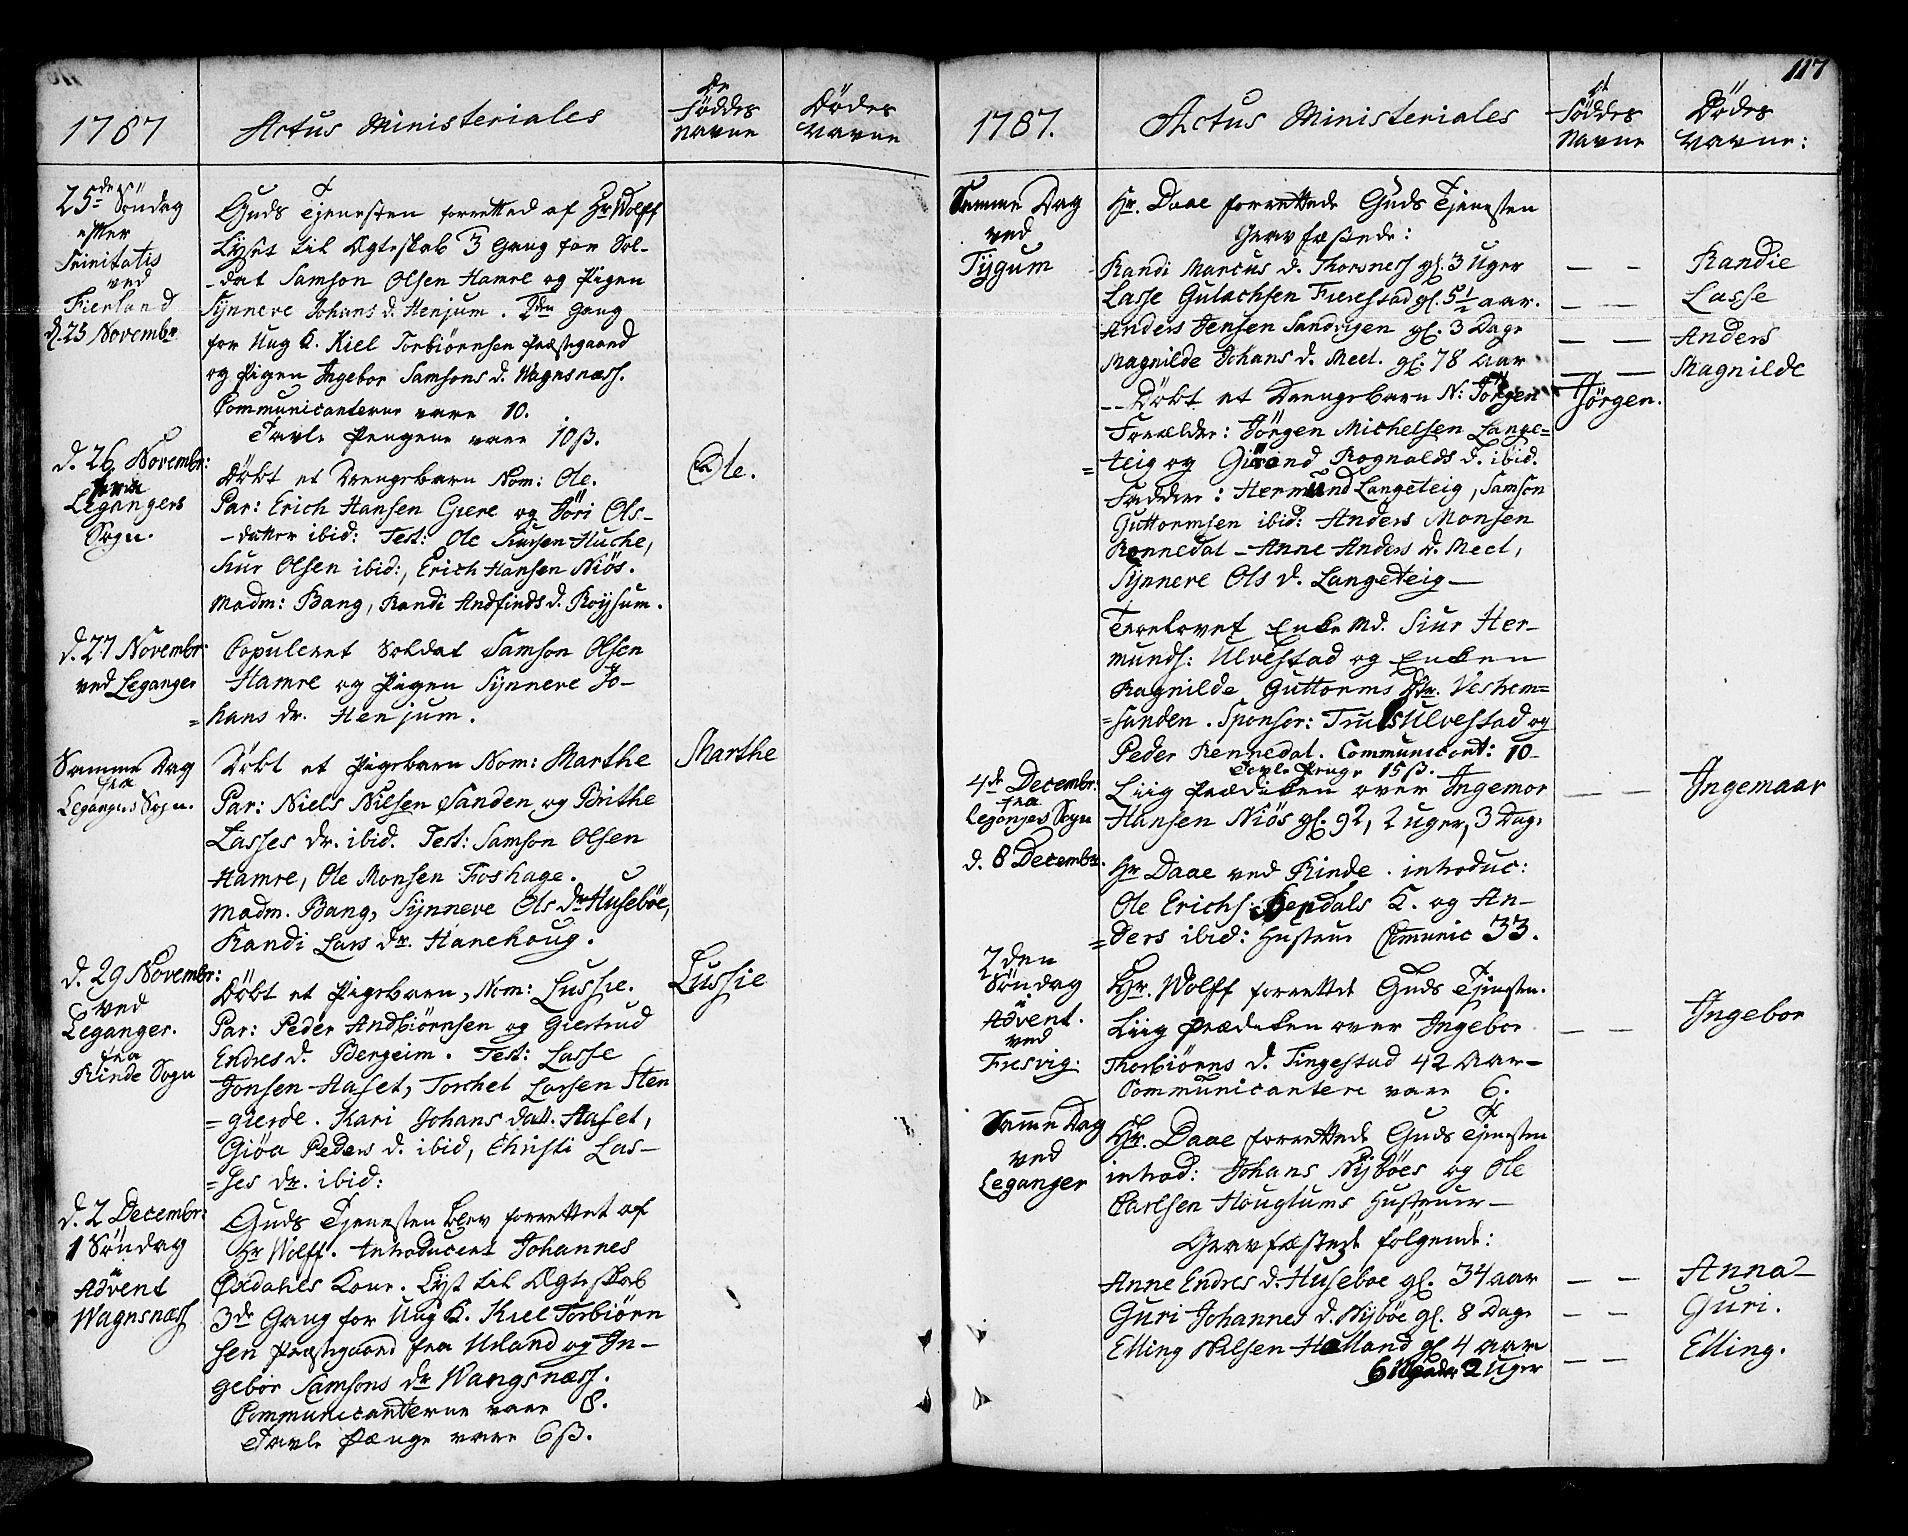 1787
Actus Ministeriales
De
Föddes
Navne
Dödes
Navne
25de Söndag
efter
Trinitatis
ved
Fierland
d. 25 Novembr.
Guds Tjenesten forretted af Hr Wolff
Lyset til Ægteskab 3 Gang for Sol-
-dat Samson Olsen Hamre og Pigen
Synnere Johans d. Henjum. 2den Gang
for Ung K. Kiel Torbiörnsen Præstgaard
og Pigen Ingebor Samsons d. Wagnsness.
Communicanterne vare 10.
Tavle Pengene vare 10ß.
d. 26 Novembr:
Legangers
Sogn.
Döbt et Drengebarn Nom: Ole.
Ole.
Par: Erich Hansen Giere og Jöri Ols-
-datter ibid: Test: Ole Siursen Huche,
Siur Olsen ibid:, Erich Hansen Niös.
Madm: Bang, Randi Andfinds d. Röysum.
d. 27 Novembr:
ved Leganger
Copuleret Soldat Samson Olsen
Hamre og Pigen Synnere Jo-
=hans dr. Henjum.
Samme Dag
fra
Legangers Sogn.
Döbt et Pigebarn Nom: Marthe
Marthe
Par: Niels Nilsen Sanden og Brithe
Lasses dr. ibid. Test: Samson Olsen
Hamre, Ole Monsen Foshage.
Madm. Bang, Synneve Ols dr Huseböe,
Randi Lars dr. Hanehoug.
d. 29 Novembr:
ved
Leganger.
fra
Rinde Sogn
Döbt et Pigebarn, Nom: Lussie.
Lussie
Par: Peder Andbiörnsen og Giertrud
Endres d. Bergeim. Test: Lasse
Jonsen Haset, Torchel Larsen Sten
=gierde. Kari Johans datt. Haset,
Giöa Peders d. ibid, Christi Las-
=ses dr. ibid:
d. 2 Decembr:
1 Söndag
Advent
Wagnsness
Guds Tjenesten blev forrettet af
Hr Wolff. Introducert Johannes
Öxdahls Kone. Lyst til Ægteskab
3de Gang for Ung K. Kiel Torbiörn
sen Præstgaard fra Urland og In-
gebor Samsons dr Wangsness.
Communicanterne vare 8.
Tavle Penge vare 6ß.
117
1787.
Actus Ministeriales
Föddes
Navne
Dödes
Navne:
Samme Dag
ved
Tygum
Hr. Daae forrettede Guds Tjenesten
Gravfæstede:
Randi Marcus d. Thorsness gl. 3 Uger
— — Randie
Lasse Gulachsen Fierestad gl. 5½ aar.
— — Lasse
Anders Jensen Sandvigen gl. 3 Dage
— — Anders
Magnilde Johans d. Meel. gl. 78 Aar
— — Magnilde
-- Döbt et Drengebarn N: Jörgen
Jörgen.
Forælder: Jörgen Michelsen Lange=
=teig og Giörond Rognalds d. ibid.
Fadder: Hermund Langeteig, Samson
Guttormsen ibid: Anders Monsen
Rennedal - Anne Anders d. Meel,
Synnere Ols d. Langeteig —
Troelovet Enke Md. Siur Her-
munds: Ulvestad og Enken
Ragnilde Guttorms Dtr. Vestrem=
=sanden. Sponsor: Truls Ulvestad og
Peder Rennedal. Communicant: 10-
Tavle Penge 15ß.
4de Decembr:
fra
Leganjer Sogn
Liig Prædiken over Ingemor
— — Ingemaar
Hansen Niös gl. 92, 2 uger, 3 Dage
d. 8 Decembr.
Hr Daae ved Rinde. introduc:
Ole Erichs: Hendals K. og An-
=ders ibid: Hustrue Comunic 33.
2den
Söndag
Advent.
ved
Fresvig.
Hr. Wolff forrettet Guds Tjenesten.
Liig Prædiken over Ingebor
— — Ingebor
Thorbiörns d. Tingestad 42 Aar-
Communicantere vare 6.
Samme Dag
ved
Leganjer
Hr. Daae forrettede Guds Tjenesten
introd: Johans Nyböes og Ole
Carlsen Hougtums Hustruer-
Gravfæstede fölgende:
Anne Endres d. Huseboe gl. 34 aar
— — Anna-
Guri Johannes d. Nyböe gl. 8 Dage
— — Guri.
Elling Nilsen Halland gl 4 aar
— — Elling.
6 Maander 2 Uger